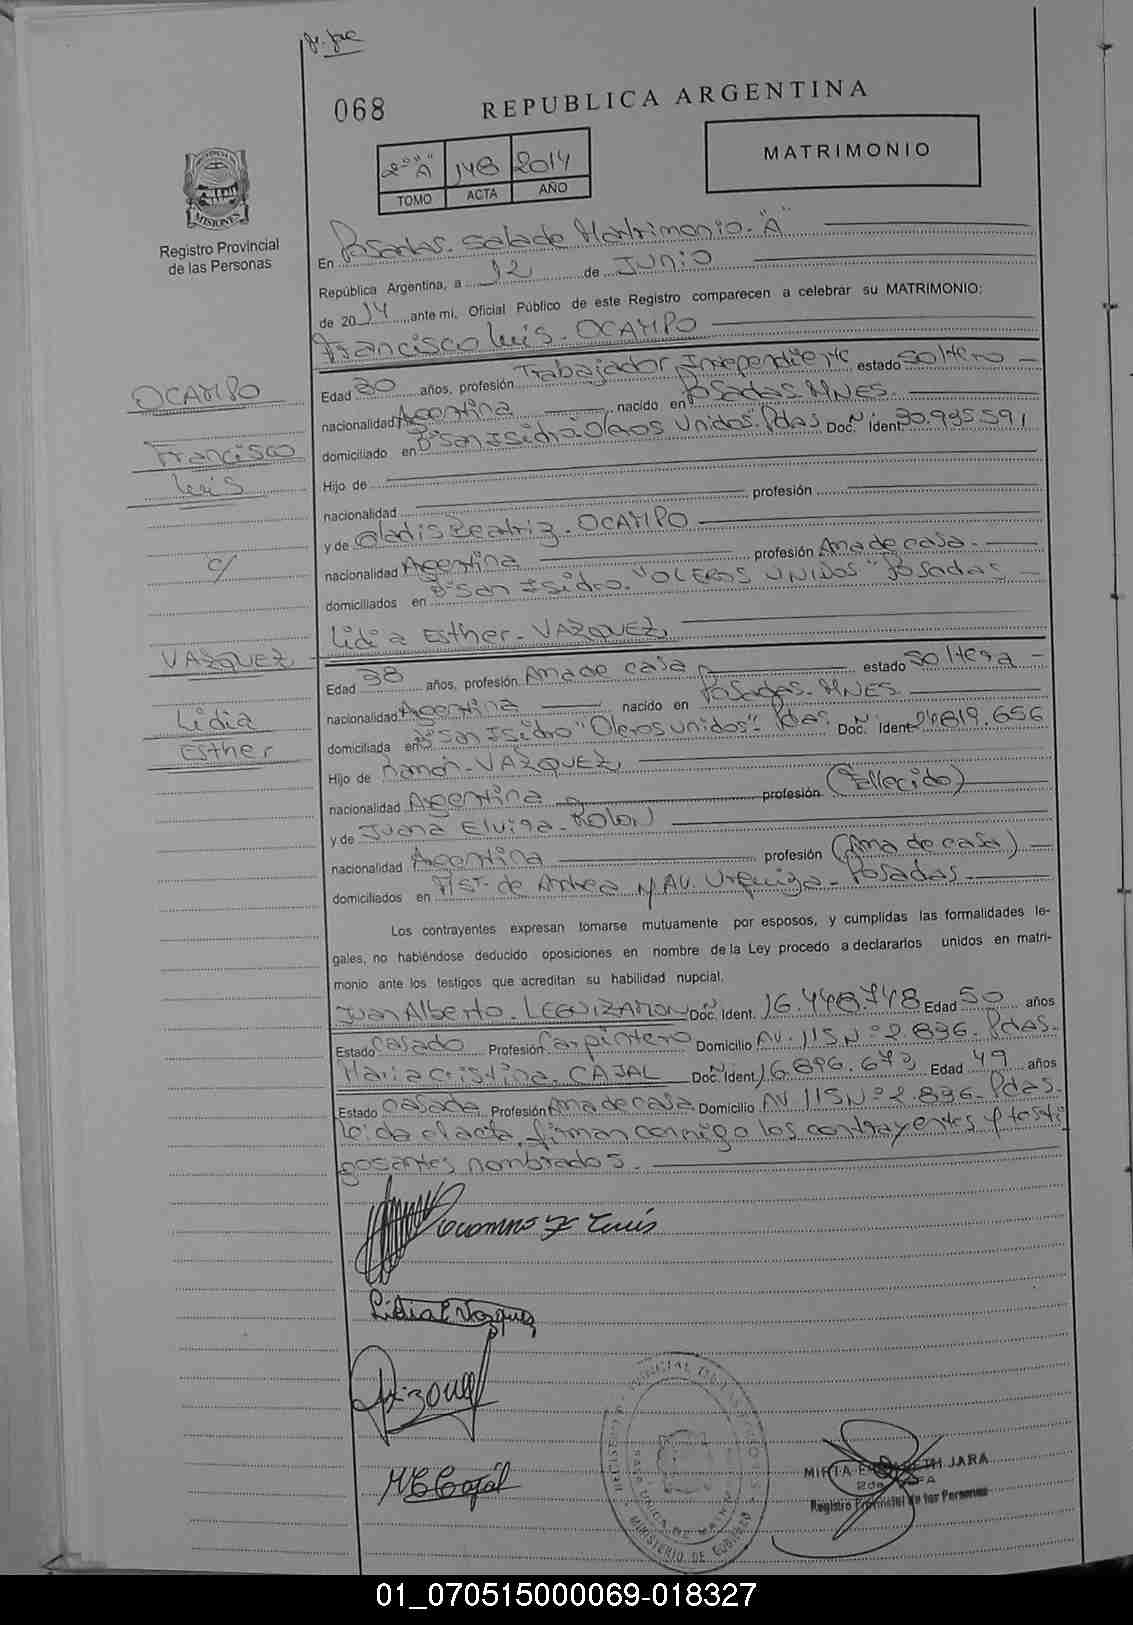 068
REPUBLICA ARGENTINA
2º "A" 148 2014
TOMO ACTA AÑO
MATRIMONIO
MISIONES
Registro Provincial
de las Personas
En Posadas. Sala de Matrimonio. "A"
República Argentina, a 12 de JUNIO
de 2014 ante mí, Oficial Público de este Registro comparecen a celebrar su MATRIMONIO:
Francisco Luis. OCAMPO
OCAMPO
Francisco
Luis
c/
VAZQUEZ
Lidia
Esther
Edad 30 años, profesión Trabajador Independiente estado Soltero
nacionalidad Argentina nacido en Posadas. MNES.
domiciliado en Bº San Isidro. Oleros Unidos". Pdas Doc. Nº Ident 30.935.591
Hijo de
nacionalidad profesión
y de Gladis Beatriz. OCAMPO
nacionalidad Argentina profesión Ama de casa.
domiciliados en Bº San Isidro. "OLEROS UNIDOS" Posadas
Lidia Esther. VAZQUEZ
Edad 38 años, profesión Ama de casa estado Soltera
nacionalidad Argentina nacido en Posadas. MNES.
domiciliada en Bº San Isidro "Oleros Unidos". Pdas Doc. Nº Ident 24.819.656
Hijo de Ramón. VAZQUEZ
nacionalidad Argentina profesión (Fallecido)
y de Juana Elvira. Rolon
nacionalidad Argentina profesión (Ama de casa)
domiciliados en AV. Urquiza. Posadas.
Los contrayentes expresan tomarse mutuamente por esposos, y cumplidas las formalidades le-
gales, no habiéndose deducido oposiciones en nombre de la Ley procedo a declararlos unidos en matri-
monio ante los testigos que acreditan su habilidad nupcial.
Juan Alberto. LEGUIZAMON Doc. Nº Ident. 16.448.748 Edad 50 años
Estado Casado Profesión Carpintero Domicilio AV. 115 Nº 2.836. Pdas.
Maria Cristina. CAJAL Doc. Nº Ident. 16.896.673 Edad 49 años
Estado Casada Profesión Ama de casa Domicilio AV 115 Nº 2.836. Pdas.
leida el acta, firman conmigo los contrayentes y testi
gos antes nombrados.
Ocampo F Luis
Lidia E Vazquez
MC Cajal
MIRTA JARA
Registro Provincial de las Personas
01_070515000069-018327